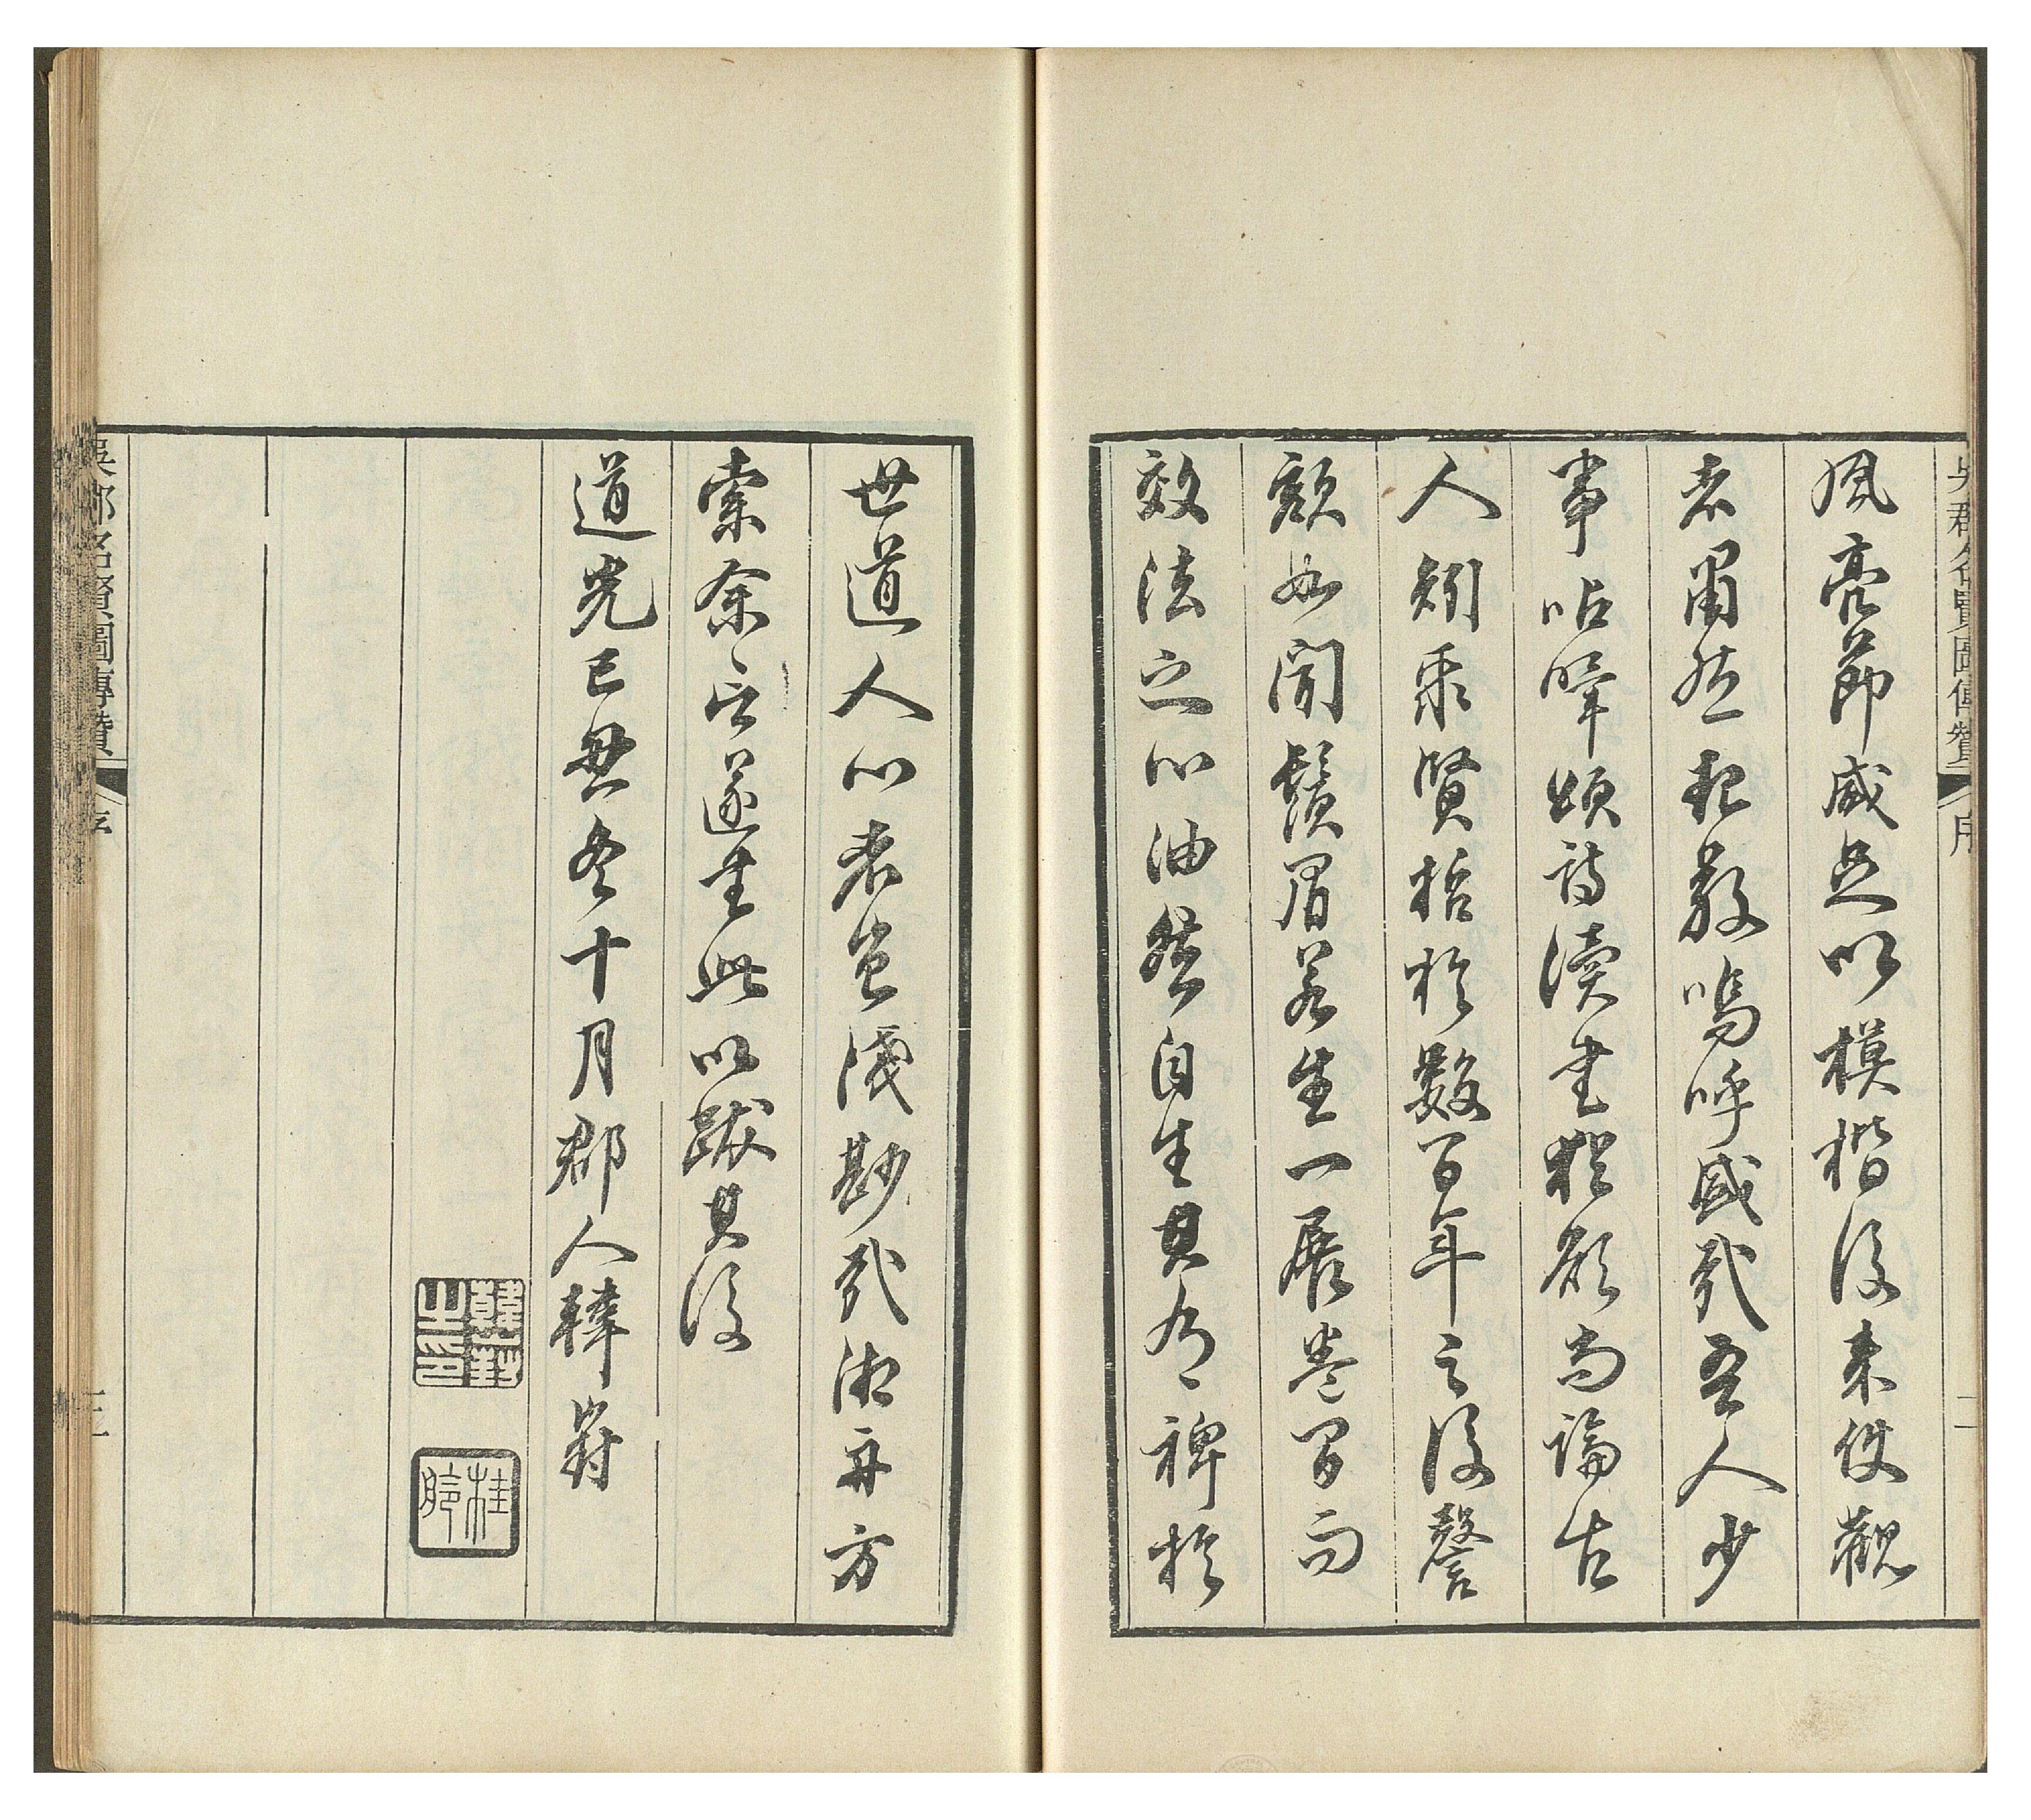 吳郡名賢圖傳贊
序
二
風亮節咸足以模楷後來使觀
者肅然起敬嗚呼盛哉吾人少
事呫嗶頌詩讀書猶欲尚論古
人矧乘賢哲於數百年之後謦
欬如聞鬚眉若生一展卷間而
效法之心油然自生其有裨於
世道人心者豈淺尠哉湘舟方
索余言遂書此以跋其後
道光己丑冬十月郡人韓崶
韓崶之印
桂舲
吳郡名賢圖傳贊
序